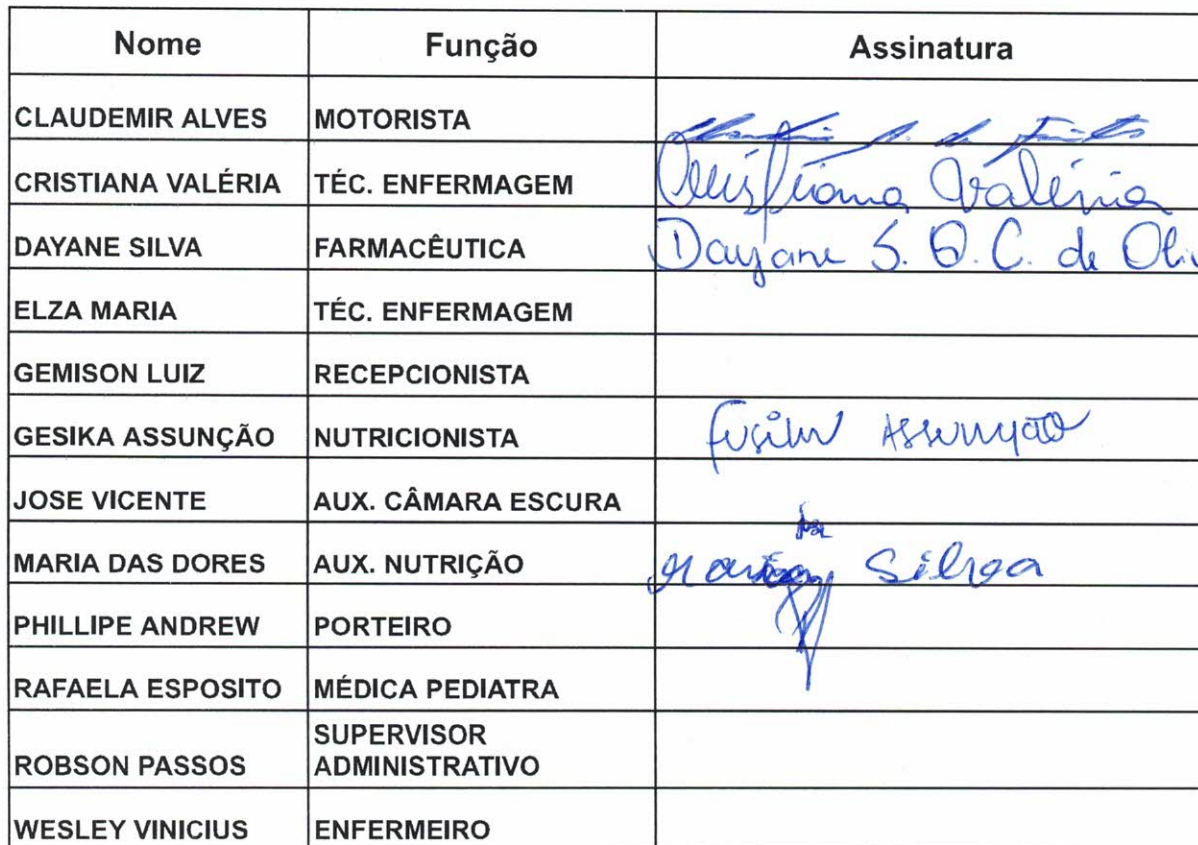 Nome Função Assinatura
CLAUDEMIR ALVES MOTORISTA
CRISTIANA VALÉRIA TÉC. ENFERMAGEM Cristiana Valéria
DAYANE SILVA FARMACÊUTICA Dayane S. O. C. de Oliv
ELZA MARIA TÉC. ENFERMAGEM
GEMISON LUIZ RECEPCIONISTA
GESIKA ASSUNÇÃO NUTRICIONISTA Assunção
JOSE VICENTE AUX. CÂMARA ESCURA
MARIA DAS DORES AUX. NUTRIÇÃO Maria Silva
PHILLIPE ANDREW PORTEIRO
RAFAELA ESPOSITO MÉDICA PEDIATRA
SUPERVISOR
ROBSON PASSOS ADMINISTRATIVO
WESLEY VINICIUS ENFERMEIRO